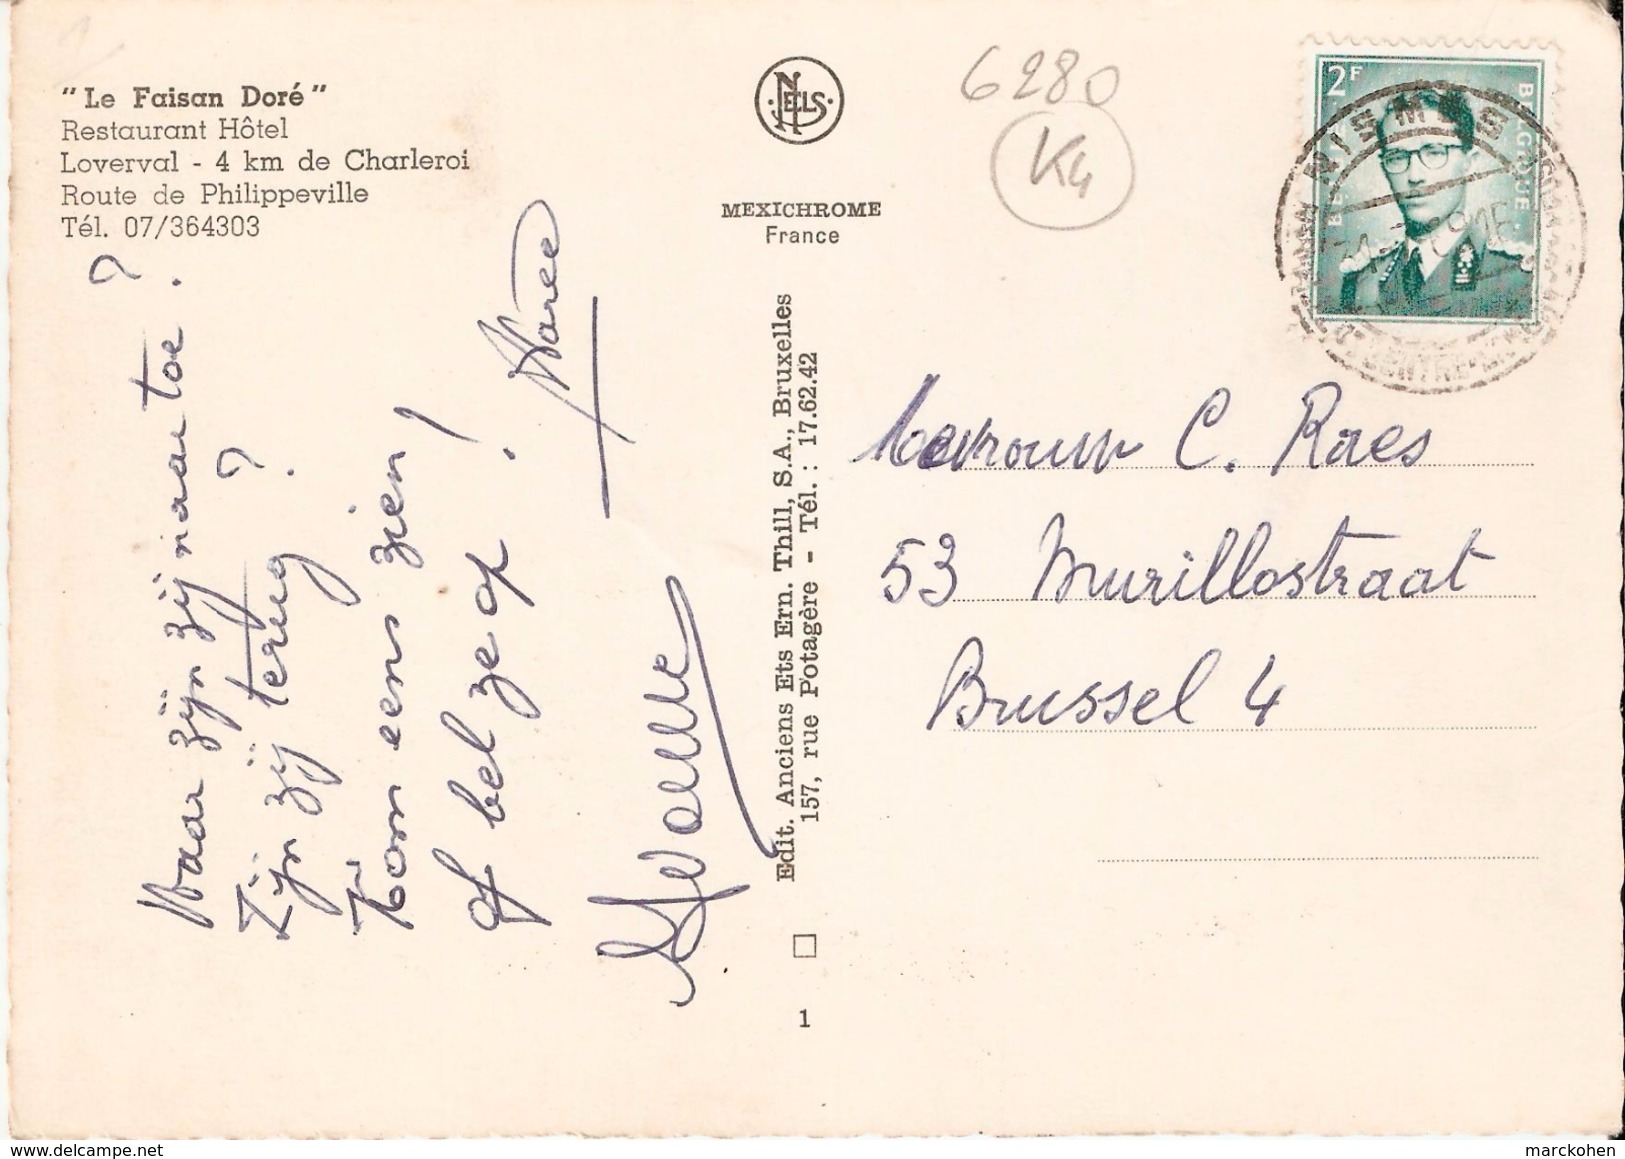 "Le Faisan Doré"
Restaurant Hôtel
Loverval - 4 km de Charleroi
Route de Philippeville
Tél. 07/364303
NELS
MEXICHROME
France
Edit. Anciens Ets Ern. Thill, S.A., Bruxelles
157, rue Potagère - Tél. : 17.62.42
1
6280
K4
2F
BELGIE BELGIQUE
NISMES
Waar zijn zij naartoe ?
Zijn zij terug ?
Kom eens zien !
of bel ze op !
Mevrouw C. Raes
53 Murillostraat
Brussel 4
marckohen